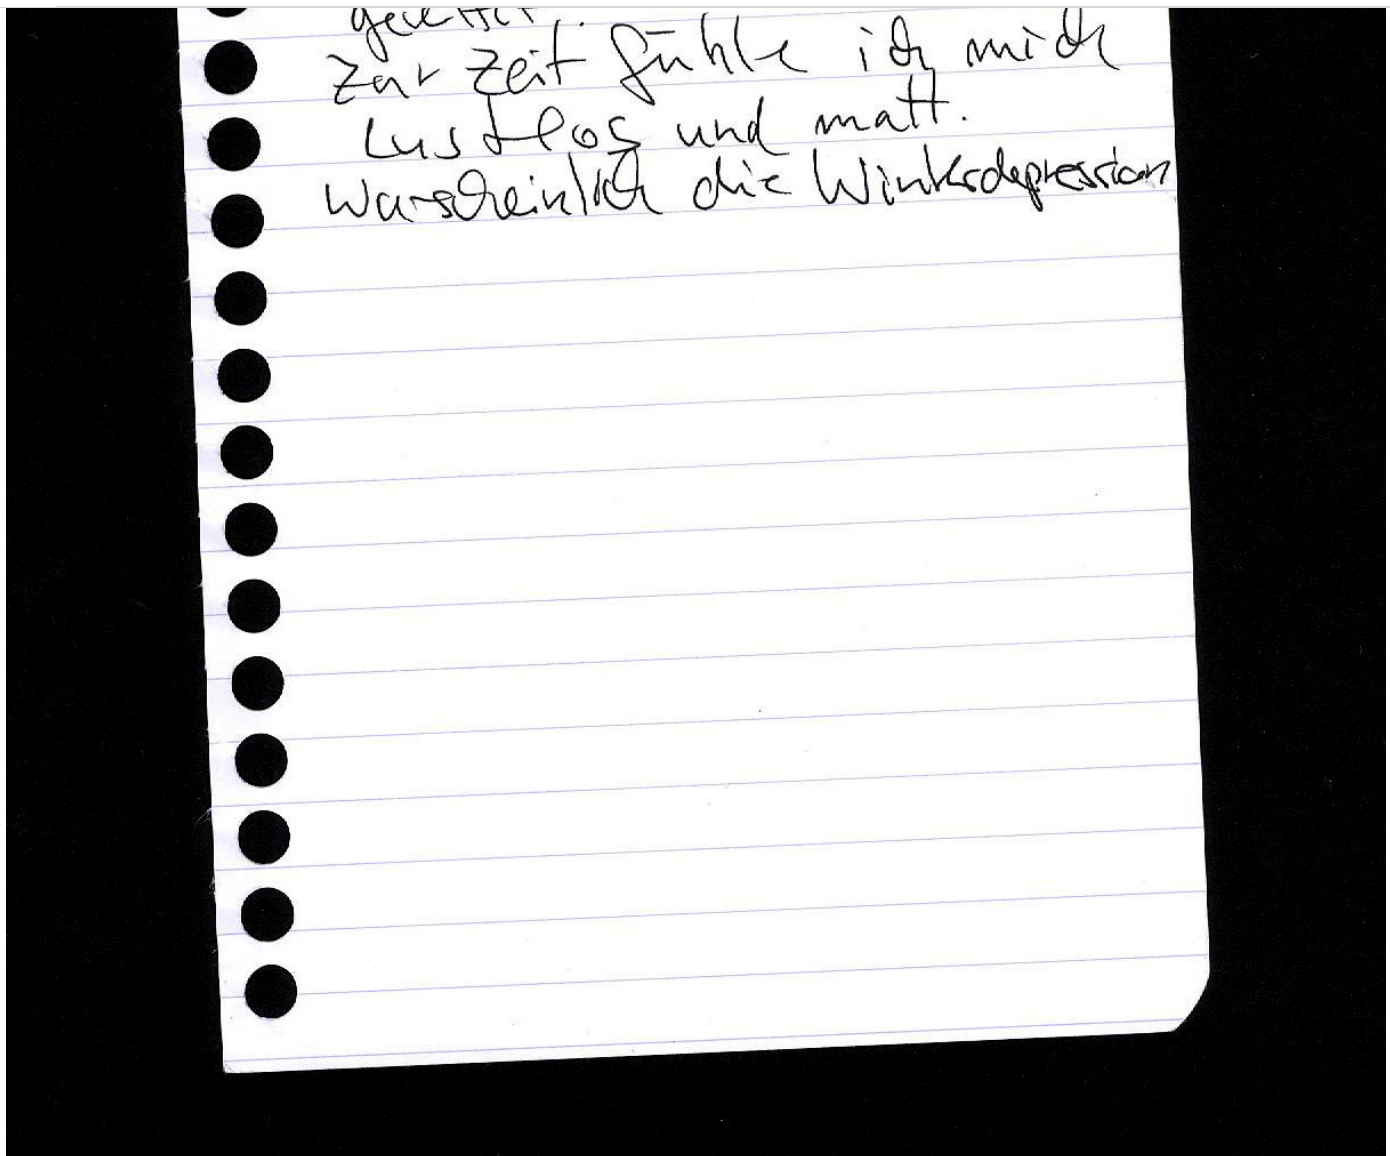 zur Zeit fühle ich mich
Lustlos und matt.
Warscheinlich die Winterdepression